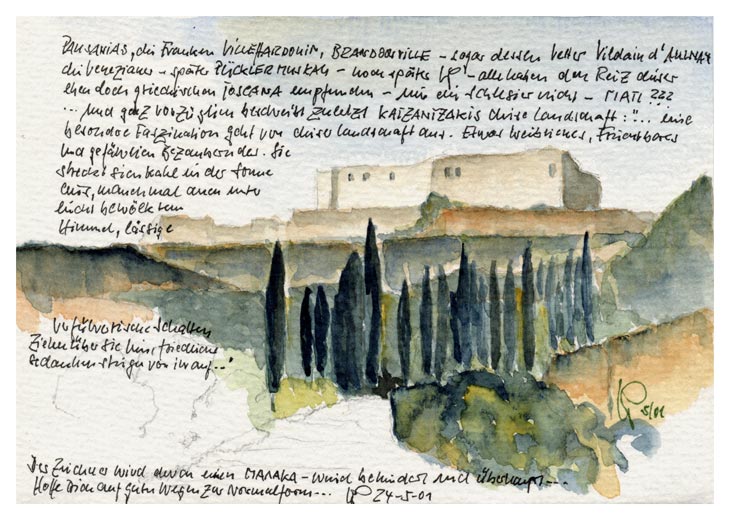 PAUSANIAS, die Franken VILLEHARDOUIN, - sogar dessen Vetter Vildain d'AULNAY
die Venezianer - später PÜCKLER MUSKAU - noch später - alle haben den Reiz dieser
eben doch griechischen TOSCANA empfunden - nur ein Schlesier nicht - ΓΙΑΤΙ ???
... und ganz vorzüglich beschreibt zuletzt KATZANTZAKIS diese Landschaft: "... eine
besondere Faszination geht von dieser Landschaft aus. Etwas Weibliches, Fruchtbares
und gefährlich Bezauberndes. Sie
streckt sich kahl in der Sonne
aus, manchmal auch unter
leicht bewölktem
Himmel, lässige
verführerische Schatten
Ziehen über sie hin, friedliche
Gedanken steigen von ihr auf..."
Der Zeichner wird durch einen - Wind behindert und überhaupt...
Hoffe Dich auf guten Wegen zur Normalform... 24-5-01
5/01